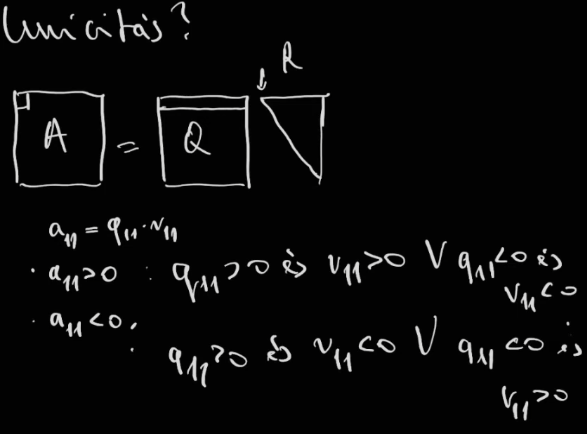 Unicitás?
R
A = Q
a₁₁ = q₁₁·r₁₁
· a₁₁>0 : q₁₁>0 és r₁₁>0 V q₁₁<0 és
r₁₁<0
· a₁₁<0:
q₁₁>0 és r₁₁<0 V q₁₁<0 és
r₁₁>0